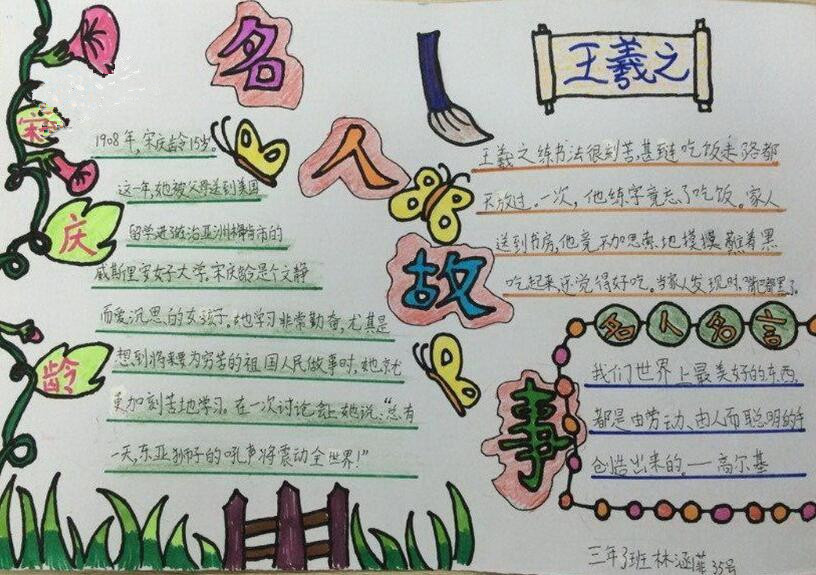 名人故事
宋庆龄
1908年,宋庆龄15岁。
这一年,她被父母送到美国
留学进了佐治亚州梅肯市的
威斯里安女子大学,宋庆龄是个文静
而爱沉思的女孩子。她学习非常勤奋,尤其是
想到将来要为穷苦的祖国人民做事时,她就
更加刻苦地学习。在一次讨论会上她说:“总有
一天,东亚狮子的吼声将震动全世界!”
王羲之
王羲之练书法很刻苦,甚至连吃饭走路都
不放过。一次,他练字竟忘了吃饭。家人
送到书房,他竟不加思索地摸摸蘸着墨
吃起来,还觉得好吃。当家人发现时,嘴都黑了。
名人名言
我们世界上最美好的东西,
都是由劳动、由人而聪明的手
创造出来的。——高尔基
三年3班 林涵菲 35号